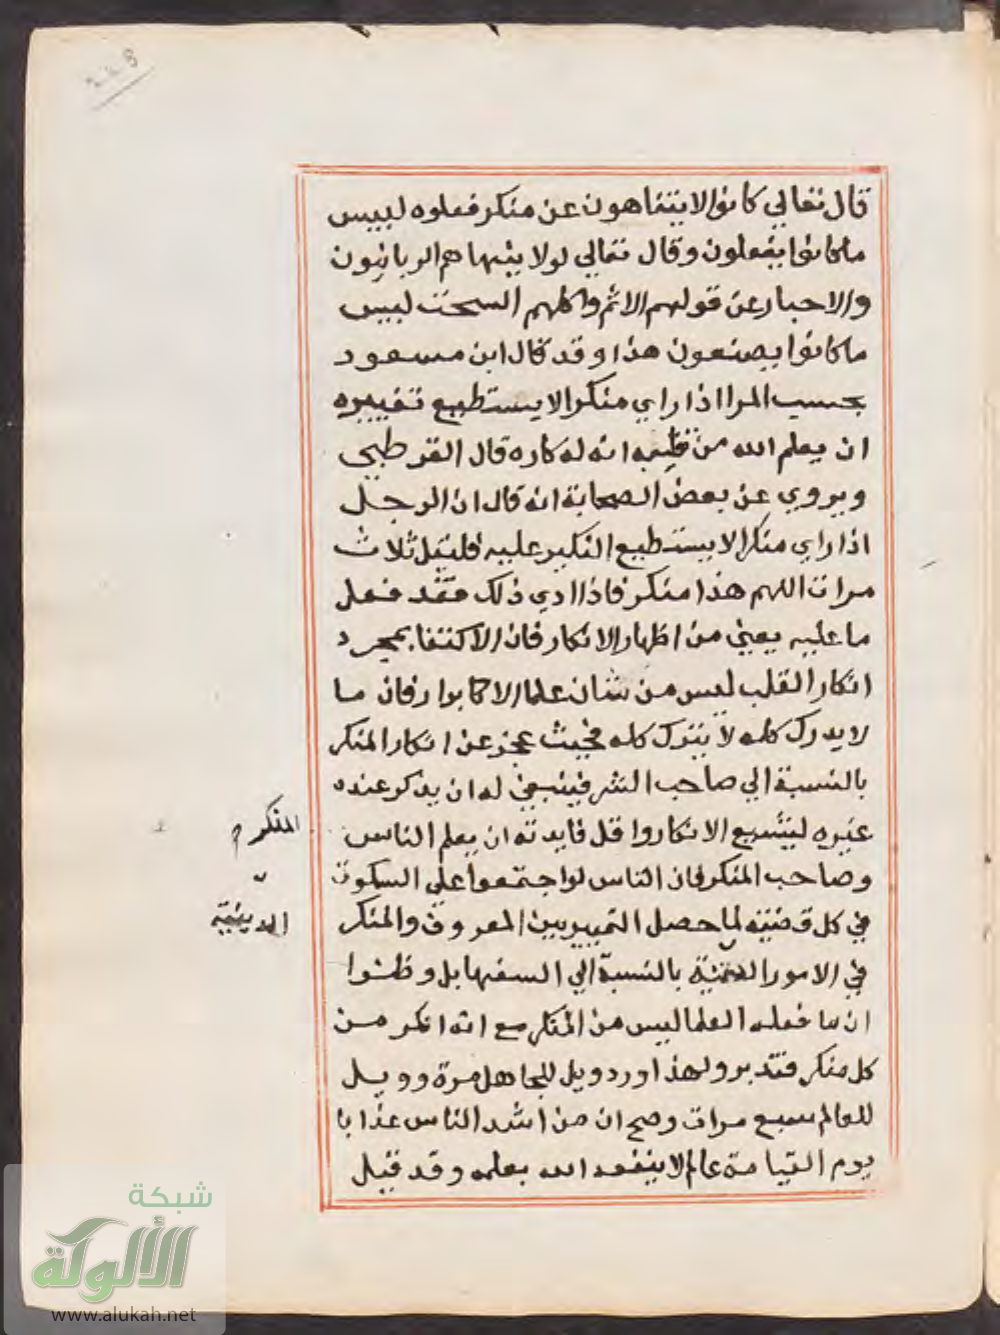 ٢٢٨
قال تعالي كانوا لا يتناهون عن منكر فعلوه لبيس
ما كانوا يفعلون وقال تعالي لولا ينهاهم الربانيون
والاحبار عن قولهم الاثم واكلهم السحت لبيس
ما كانوا يصنعون هذا وقد قال ابن مسعود
بحسب المرا اذا راي منكرا لا يستطيع تغييره
ان يعلم الله من قلبه انه له كاره قال القرطبي
ويروي عن بعض الصحابة انه قال ان الرجل
اذا راي منكرا لا يستطيع النكير عليه فليقل ثلاث
مرات اللهم هذا منكر فاذا ادي ذلك فقد فعل
ما عليه يعني من اظهار الانكار فان الاكتفا بمجرد
انكار القلب ليس من شان علما الاكابر ارفان ما
لا يدرك كله لا يترك كله فحيث عجز عن انكار المنكر
بالنسبة الي صاحب الشر فينبغي له ان يذكر عنده
غيره ليشيع الانكار واقل فايدته ان يعلم الناس
المنكر
وصاحب المنكر فان الناس لو اجتمعوا علي السكوت
في كل قضية لما حصل التمييز بين المعروف والمنكر
الدينية
في الامور بالنسبة الي السفها بل وظنوا
ان ما فعله العلما ليس من المنكر مع انه انكر من
كل منكر فتدبر ولهذا ورد ويل للجاهل مرة وويل
للعالم سبع مرات وصح ان من اشد الناس عذابا
يوم القيامة عالم لا ينفعه الله بعلمه وقد قيل
شبكة
الألوكة
www.alukah.net